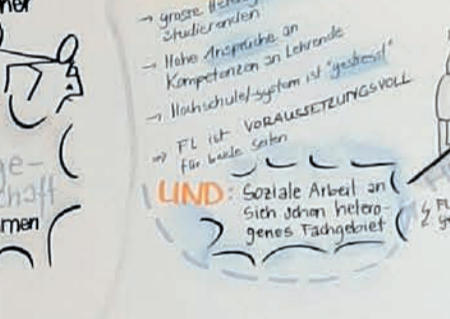 ner
→ grosse
Studierenden
→ Hohe Ansprüche an
Kompetenzen an Lehrende
→ Hochschule/-system ist "gestresst"
⇒ FL ist VORAUSSETZUNGSVOLL
für beide Seiten
UND: Soziale Arbeit an
sich schon hetero-
genes Fachgebiet
ge-
chaft
men
FL